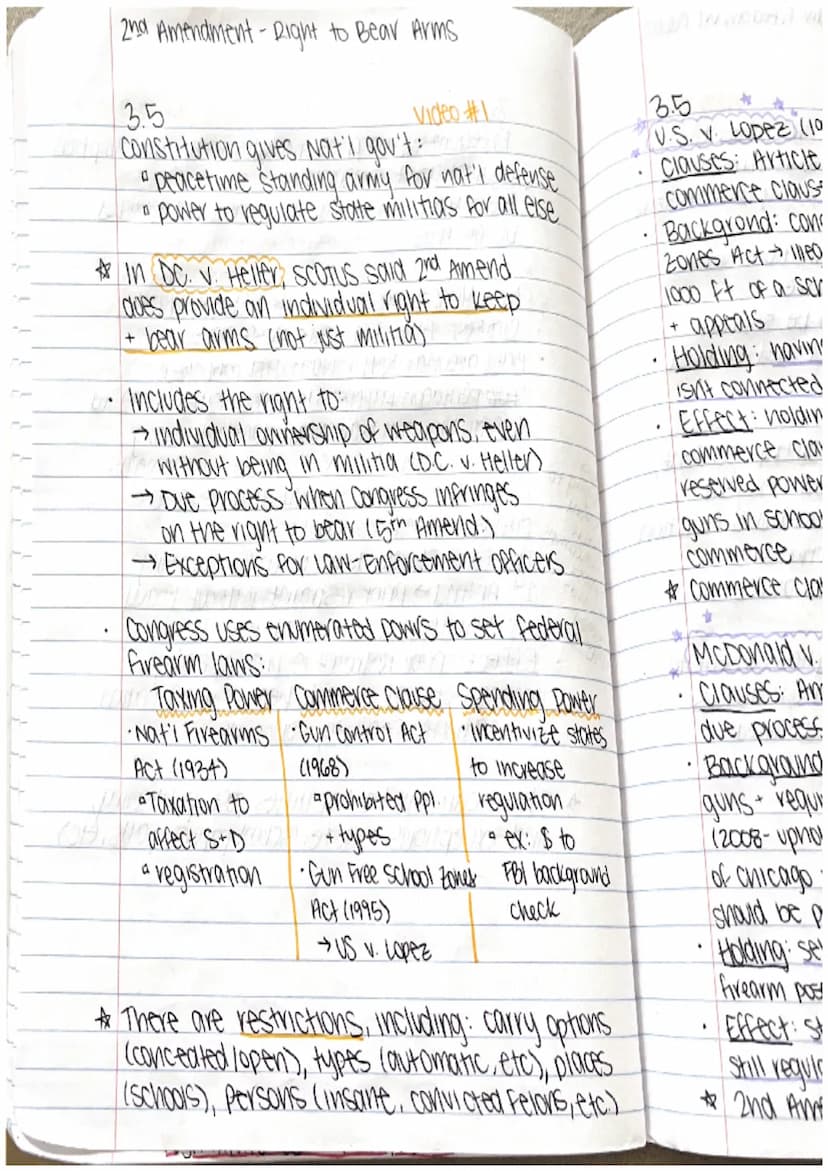 2nd Amendment - Right to Bear Arms
3.5
Video #1
Constitution gives Nat'l gov't:
▫ peacetime standing army for nat'l defense
▫ power to regulate state militias for all else
☆ In D.C. v. Heller, SCOTUS said 2nd Amend
does provide an individual right to keep
+ bear arms (not just militia)
• Includes the right to:
→ Individual ownership of weapons, even
without being in militia (D.C. v. Heller)
→ Due process when Congress infringes
on the right to bear (5th Amend.)
→ Exceptions for Law-Enforcement officers
• Congress uses enumerated powrs to set federal
firearm laws:
Taxing Power
• Nat'l Firearms
Act (1934)
▫ Taxation to
affect S+D
▫ registration
Commerce Clause
• Gun Control Act
(1968)
▫ prohibited ppl
+ types
• Gun Free School Zones
Act (1995)
→ US v. Lopez
Spending Power
• Incentivize states
to increase
regulation
▫ ex: $ to
FBI background
check
☆ There are restrictions, including: carry options
(concealed/open), types (automatic, etc), places
(schools), persons (insane, convicted felons, etc.)
3.5
U.S. v. Lopez (19
• Clauses: Article
commerce claus
• Backgrond: con
zones Act → illeg
1000 ft of a sch
+ appeals
• Holding: having
isnt connected
• Effect: holdin
commerce cla
reserved power
guns in school
commerce
☆ Commerce cla
McDonald v.
• Clauses: Am
due process
• Background
guns + requi
(2008- uphol
of chicago
should be p
• Holding: se
firearm pos
• Effect: St
still regul
☆ 2nd Am